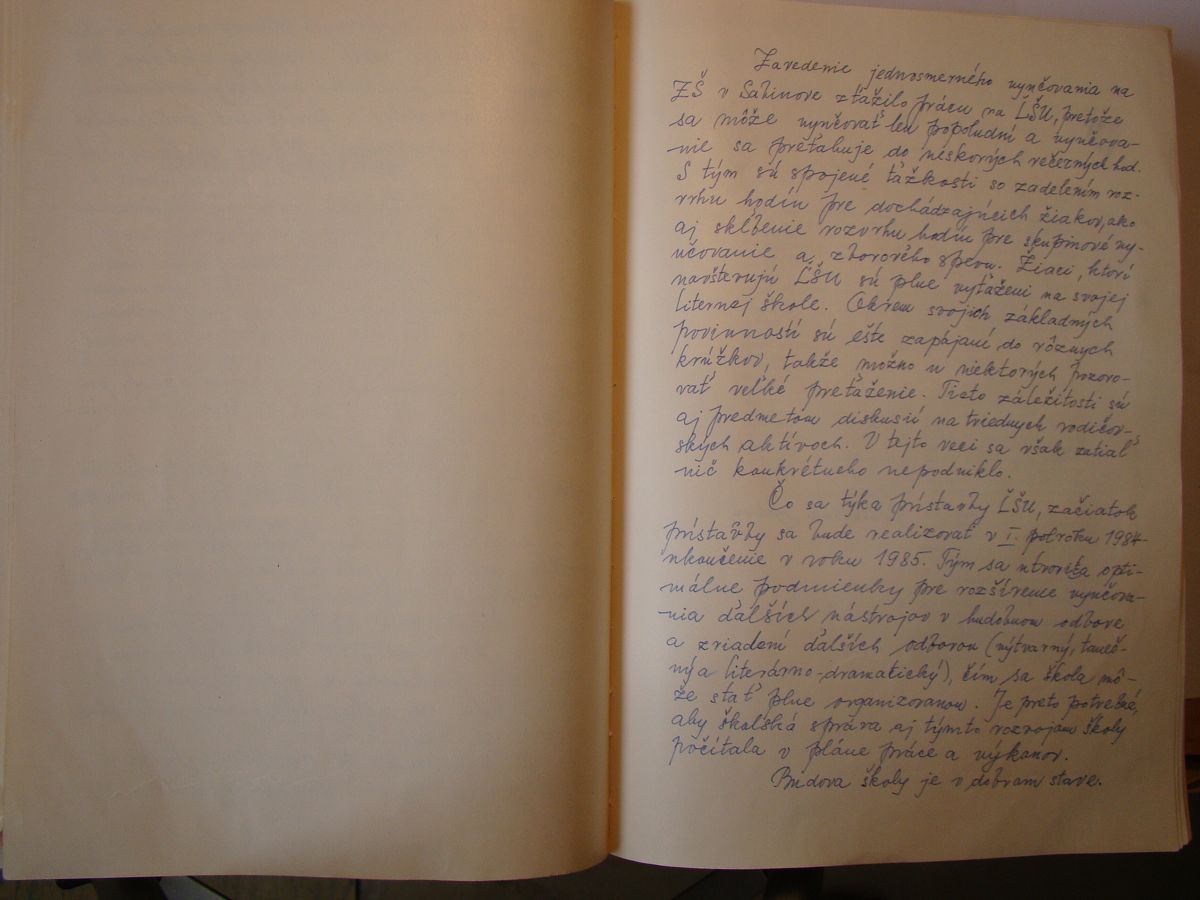 Zavedenie jednosmerného vyučovania na
ZŠ v Sabinove zťažilo prácu na ĽŠU, pretože
sa môže vyučovať len popoludní a vyučova-
nie sa preťahuje do neskorých večerných hod.
S tým sú spojené ťažkosti so zadelením roz-
vrhu hodín pre dochádzajúcich žiakov, ako
aj skĺbenie rozvrhu hodín pre skupinové vy-
učovanie a zborového spevu. Žiaci, ktorí
navštevujú ĽŠU sú plne vyťažení na svojej
liternej škole. Okrem svojich základných
povinností sú ešte zapájaní do rôznych
krúžkov, takže možno u niektorých pozoro-
vať veľké preťaženie. Tieto záležitosti sú
aj predmetom diskusií na triednych rodičov-
ských aktívoch. V tejto veci sa však zatiaľ
nič konkrétneho nepodniklo.
Čo sa týka prístavby ĽŠU, začiatok
prístavby sa bude realizovať v I. polroku 1984-
ukončenie v roku 1985. Tým sa utvoria opti-
málne podmienky pre rozšírenie vyučova-
nia ďalších nástrojov v hudobnom odbore
a zriadení ďalších odborov (výtvarný, taneč-
ný a literárno-dramatický), čím sa škola mô-
že stať plne organizovanou. Je preto potrebné,
aby školská správa aj týmto rozvojom školy
počítala v pláne práce a výkonov.
Budova školy je v dobrom stave.